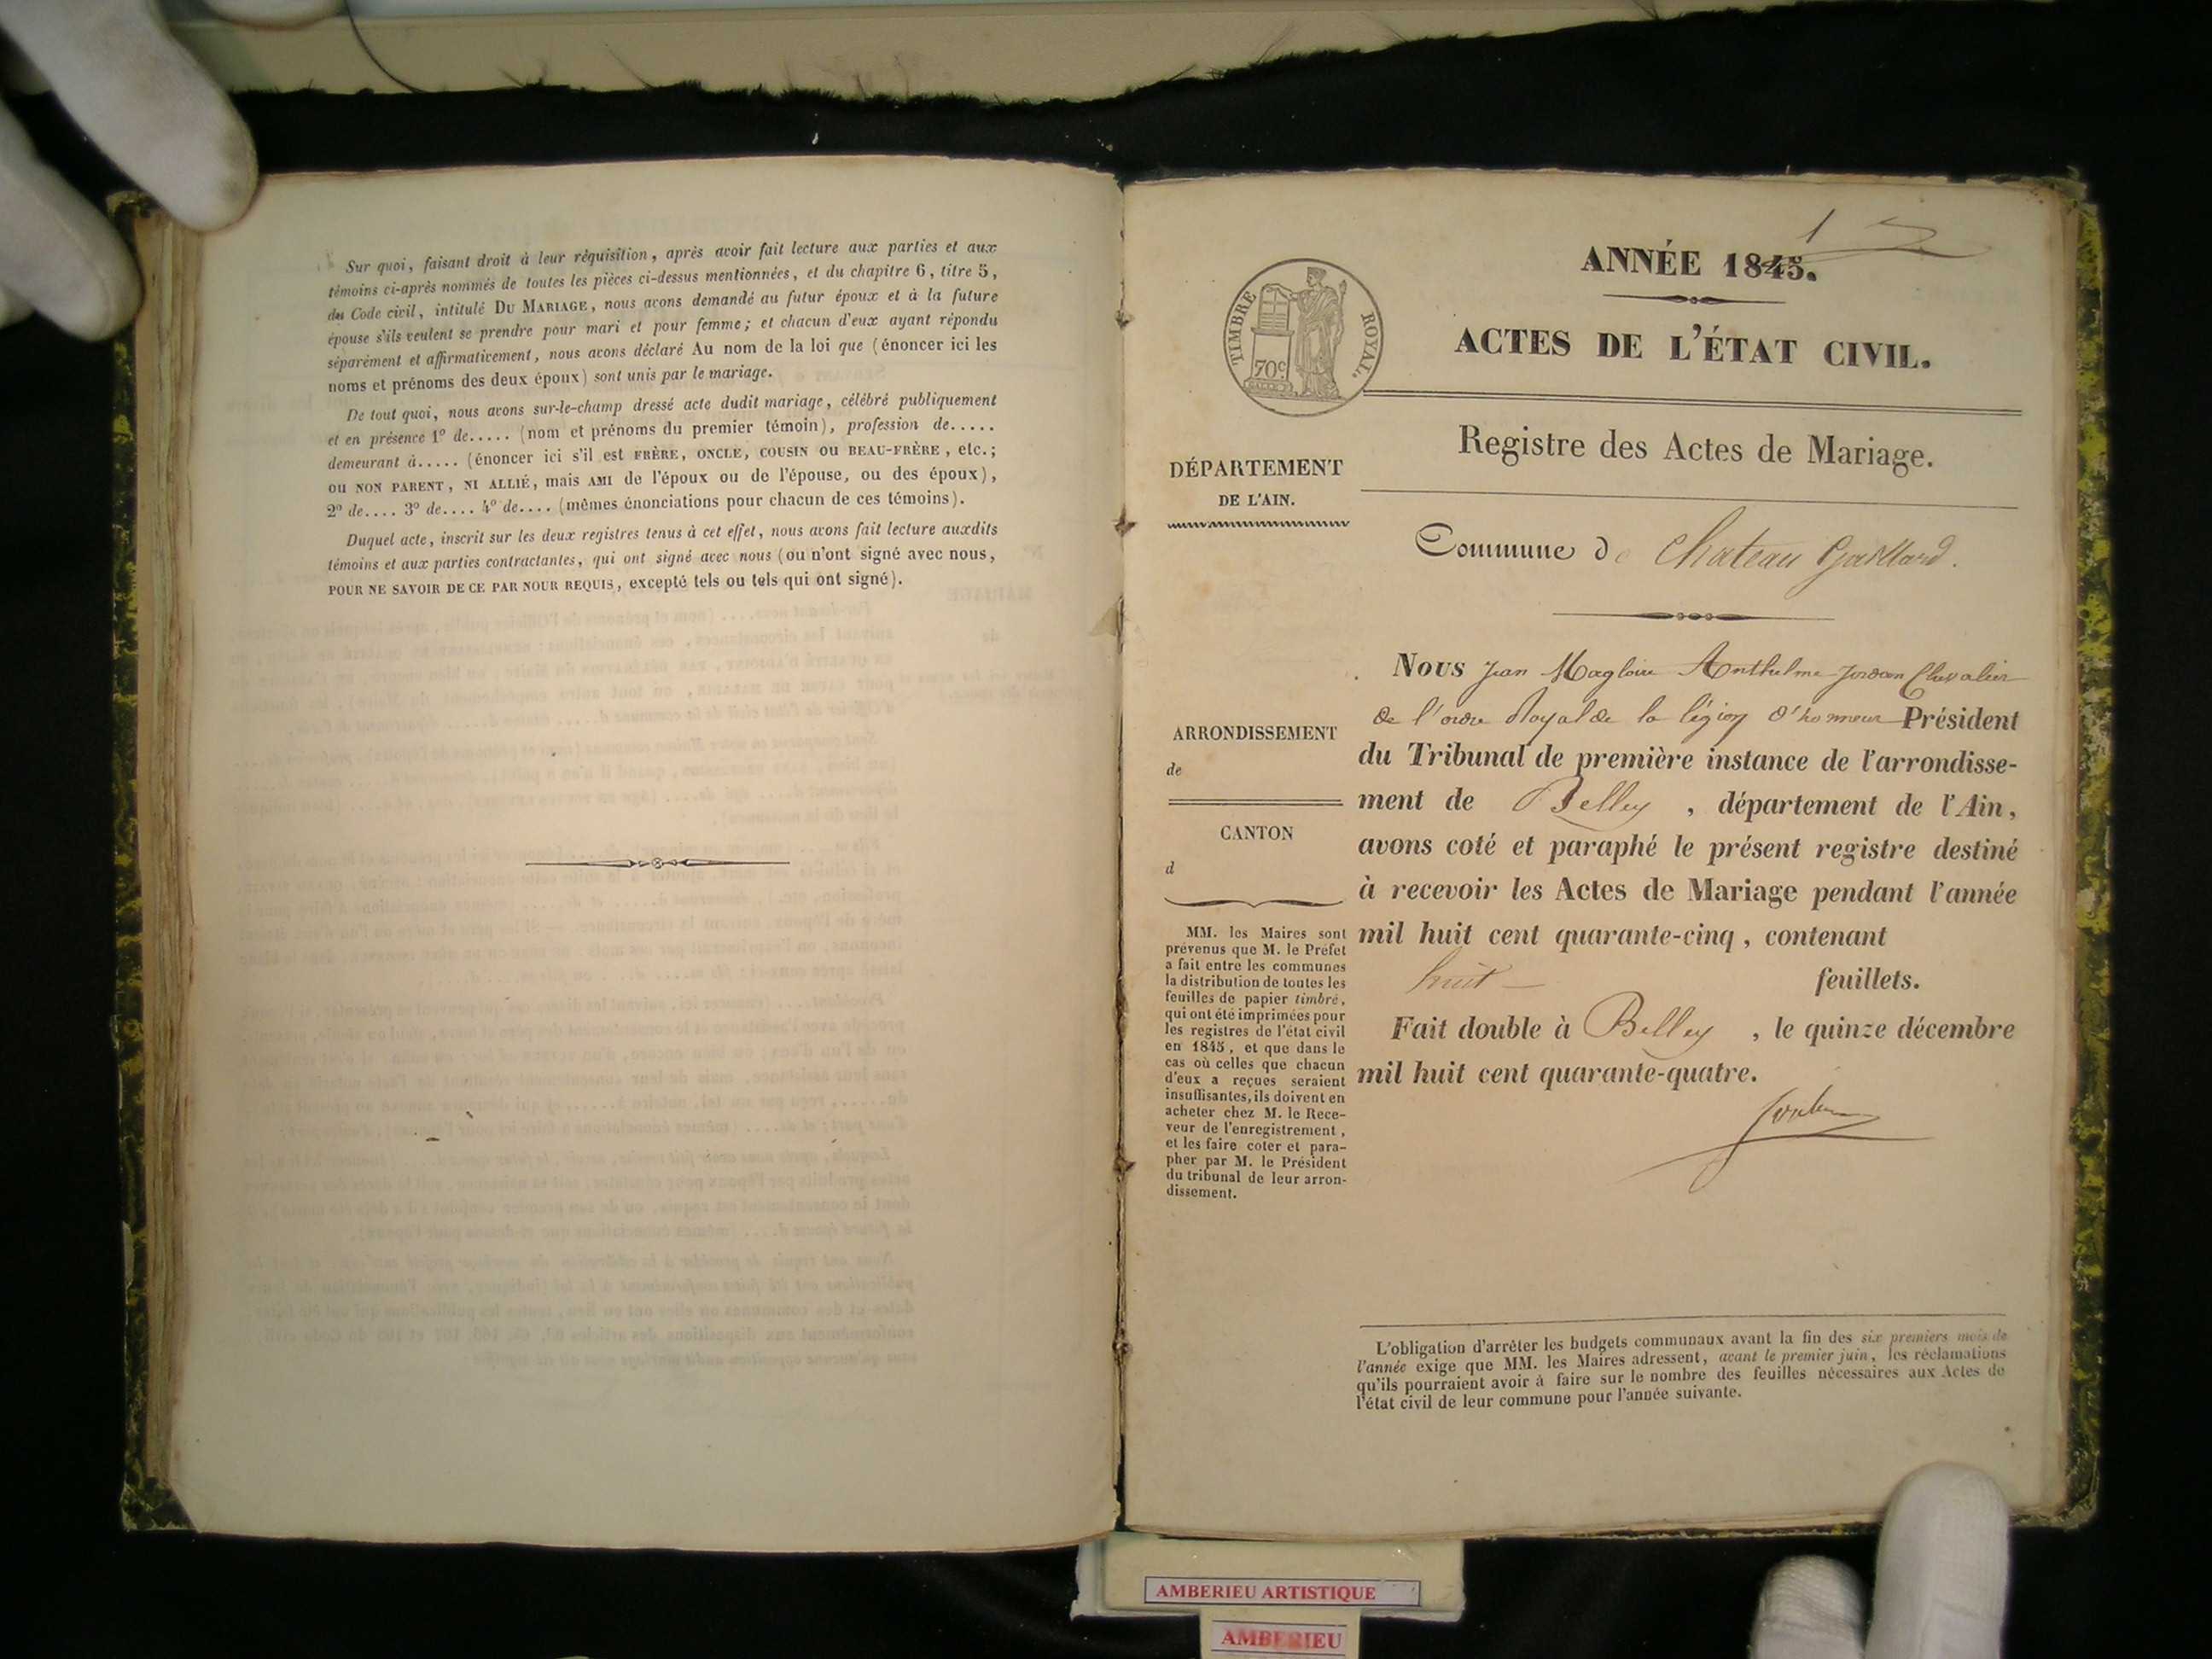 Sur quoi, faisant droit à leur réquisition, après avoir fait lecture aux parties et aux
témoins ci-après nommés de toutes les pièces ci-dessus mentionnées, et du chapitre 6, titre 5,
du Code civil, intitulé DU MARIAGE, nous avons demandé au futur époux et à la future
épouse s'ils veulent se prendre pour mari et pour femme; et chacun d'eux ayant répondu
séparément et affirmativement, nous avons déclaré Au nom de la loi que (énoncer ici les
noms et prénoms des deux époux) sont unis par le mariage.
De tout quoi, nous avons sur-le-champ dressé acte dudit mariage, célébré publiquement
et en présence 1º de..... (nom et prénoms du premier témoin), profession de.....
demeurant à..... (énoncer ici s'il est FRÈRE, ONCLE, COUSIN OU BEAU-FRÈRE, etc.;
ou NON PARENT, NI ALLIÉ, mais AMI de l'époux ou de l'épouse, ou des époux),
2º de.... 3º de.... 4º de.... (mêmes énonciations pour chacun de ces témoins).
Duquel acte, inscrit sur les deux registres tenus à cet effet, nous avons fait lecture auxdits
témoins et aux parties contractantes, qui ont signé avec nous (ou n'ont signé avec nous,
POUR NE SAVOIR DE CE PAR NOUR REQUIS, excepté tels ou tels qui ont signé).
1
ANNÉE 1845.
TIMBRE ROYAL.
70 c.
ACTES DE L'ÉTAT CIVIL.
Registre des Actes de Mariage.
DÉPARTEMENT
DE L'AIN.
Commune de Chateau Gaillard.
Nous Jean Magloire Anthelme Jordan Chevalier
de l'ordre Royal de la légion d'honneur Président
du Tribunal de première instance de l'arrondisse-
ment de Belley, département de l'Ain,
avons coté et paraphé le présent registre destiné
à recevoir les Actes de Mariage pendant l'année
mil huit cent quarante-cinq, contenant
huit feuillets.
Fait double à Belley, le quinze décembre
mil huit cent quarante-quatre.
Jordan
ARRONDISSEMENT
de
CANTON
d
MM. les Maires sont
prévenus que M. le Préfet
a fait entre les communes
la distribution de toutes les
feuilles de papier timbré,
qui ont été imprimées pour
les registres de l'état civil
en 1845, et que dans le
cas où celles que chacun
d'eux a reçues seraient
insuffisantes, ils doivent en
acheter chez M. le Rece-
veur de l'enregistrement,
et les faire coter et para-
pher par M. le Président
du tribunal de leur arron-
dissement.
L'obligation d'arrêter les budgets communaux avant la fin des six premiers mois de
l'année exige que MM. les Maires adressent, avant le premier juin, les réclamations
qu'ils pourraient avoir à faire sur le nombre des feuilles nécessaires aux Actes de
l'état civil de leur commune pour l'année suivante.
AMBERIEU ARTISTIQUE
AMBERIEU